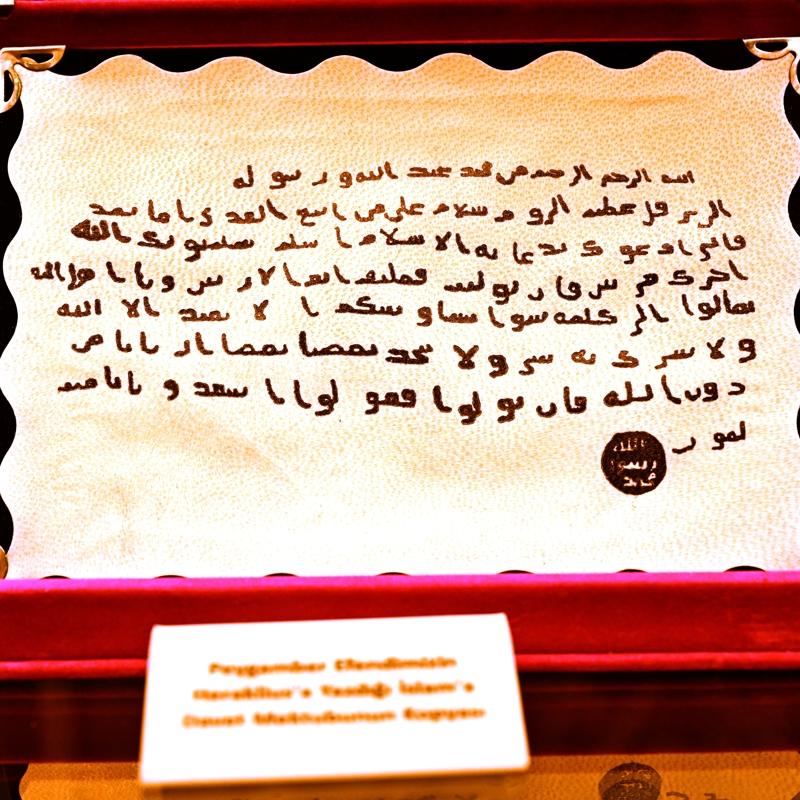 الله الرحمن الرحيم من محمد عبد الله و رسوله
الى هرقل عظيم الروم سلام على من اتبع الهدى اما بعد
فانى ادعوك بدعايه الاسلام اسلم تسلم يوتك الله
اجرك مرتين فان توليت فعليك اثم الاريسين ويا اهل
تعالوا الى كلمه سوا بيننا وبينكم ا لا نعبد الا الله
ولا نشرك به شى ولا يتخذ بعضنا بعضا اربابا من
دون الله فان تولوا فقولوا اشهدوا بانا مس
لمون
الله
رسول
محمد
Peygamber Efendimizin
Heraklius'a Yazdığı İslam'a
Davet Mektubunun Kopyası